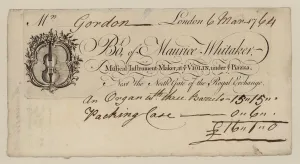 Mr Gordon — London 6 Mar 1764
Bt. of Maurice Whitaker
Musical Instrument Maker, at ye VIOLIN, under ye Piazza,
Near the North Gate of the Royal Exchange.
An Organ wth three Barrels — 15 „ 15 „
Packing Case — 0 „ 6 „
£ 16 „ 1 „ 0